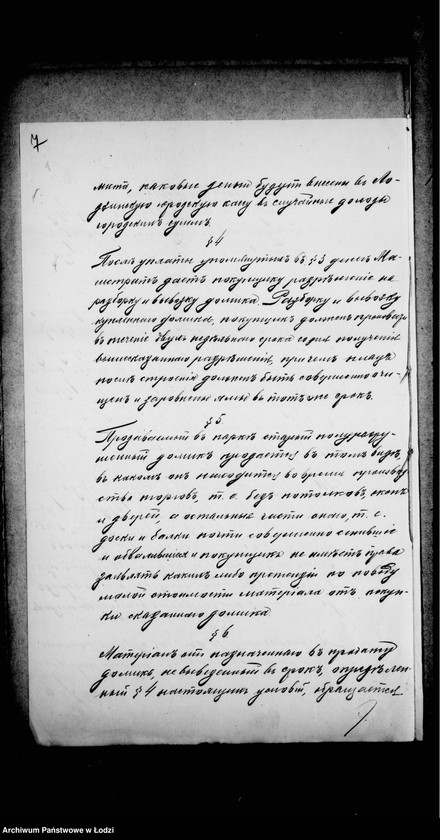 7
митъ, каковые деньги будутъ внесены въ Ло-
дзинскую городскую кассу въ случайные доходы
городскихъ суммъ.
§ 4
Послѣ уплаты упомянутыхъ въ § 3 денегъ Ма-
гистратъ дастъ покупщику разрѣшеніе на
разборку и вывозку домика. Разборку и вывозку
купленнаго домика, покупщикъ долженъ произвести
въ теченіе двухъ недѣльнаго срока со дня полученія
вышесказаннаго разрѣшенія, при чемъ плацъ
послѣ строенія долженъ быть совершенно очи-
щенъ и заровнены ямы въ тотъ же срокъ.
§ 5
Продаваемый въ паркѣ старый полуразру-
шенный домикъ продается въ томъ видѣ,
въ какомъ онъ находится во время производ
ства торговъ, т. е. безъ потолковъ, оконъ
и дверей, а остальные части онаго, т. е.
доски и балки почти совершенно сгнившіе
и обвалившіеся и покупщикъ не имѣетъ права
заявлять какихъ либо претензій по поводу
малой стоимости матеріала отъ покуп-
ки сказаннаго домика.
§ 6
Матеріалъ отъ назначеннаго въ продажу
домика, не вывезенный въ срокъ, опредѣлен-
ный § 4 настоящихъ условій, обращается
Archiwum Państwowe w Łodzi